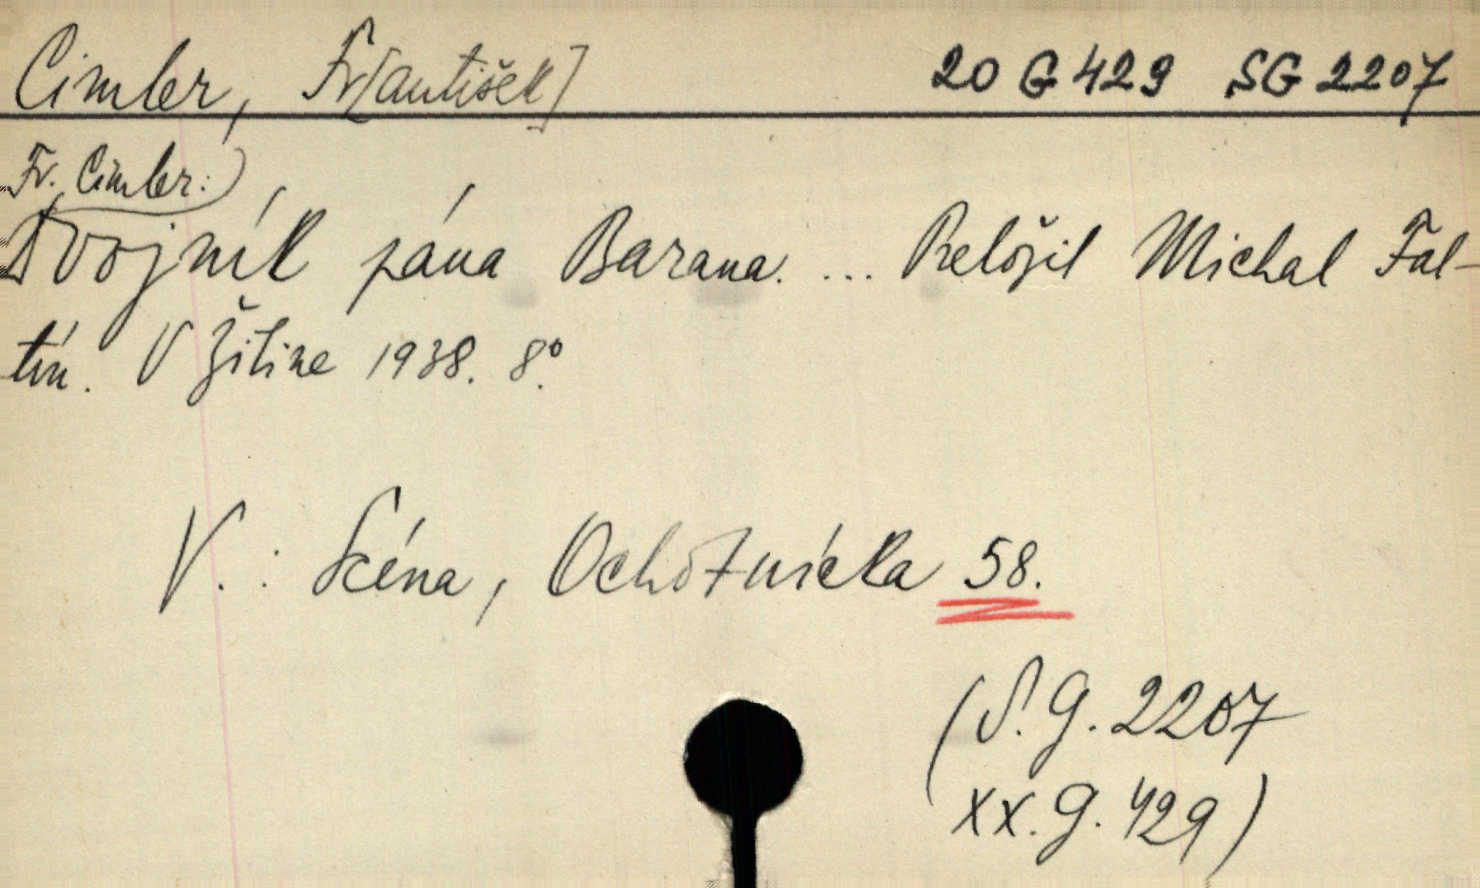 Cimler, Fr[antišek] 20 G 429 SG 2207
Fr. Cimler:)
Dvojník pána Barana. ... Preložil Michal Fal-
tín. V Žiline 1938. 8°.
V.: Scéna, Ochotnícka 58.
(S. G. 2207
XX. G. 429)